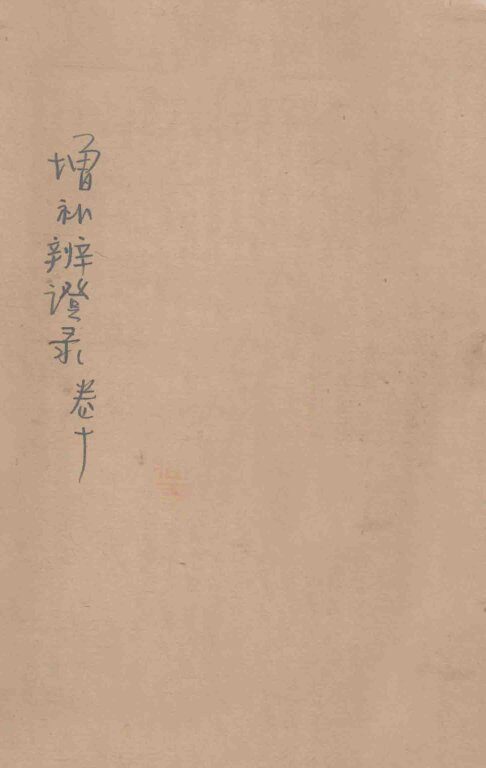 增补辨證录 卷十